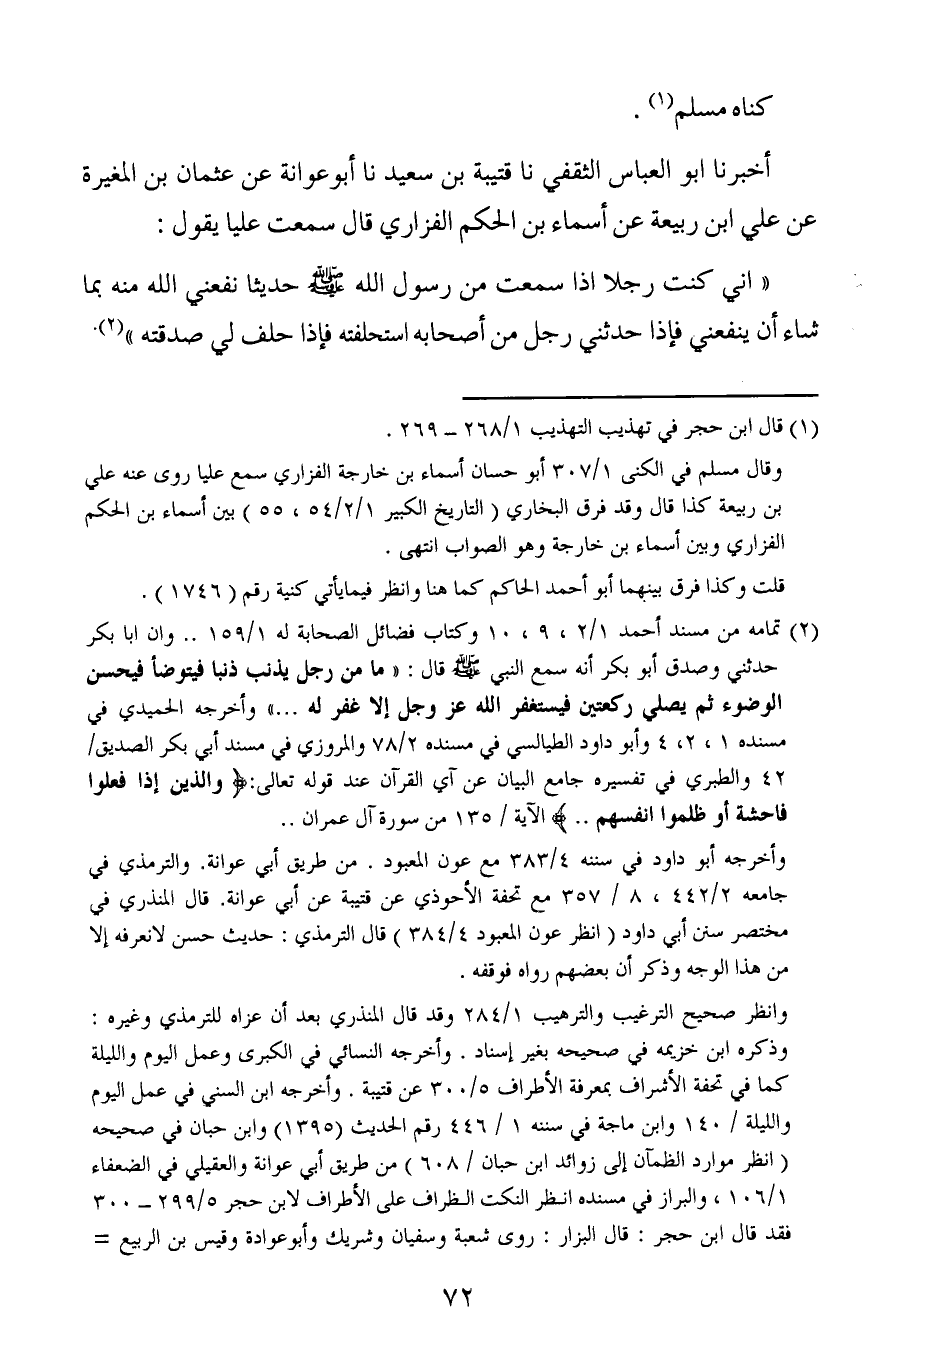 كناه مسلم(١) .
أخبرنا ابو العباس الثقفي نا قتيبة بن سعيد نا أبوعوانة عن عثمان بن المغيرة
عن علي ابن ربيعة عن أسماء بن الحكم الفزاري قال سمعت عليا يقول :
« اني كنت رجلا اذا سمعت من رسول الله ﷺ حديثا نفعني الله منه بما
شاء أن ينفعني فإذا حدثني رجل من أصحابه استحلفته فإذا حلف لي صدقته »(٢).
(١) قال ابن حجر في تهذيب التهذيب ٢٦٨/١ – ٢٦٩ .
وقال مسلم في الكنى ٣٠٧/١ أبو حسان أسماء بن خارجة الفزاري سمع عليا روى عنه علي
بن ربيعة كذا قال وقد فرق البخاري ( التاريخ الكبير ٥٤/٢/١ ، ٥٥ ) بين أسماء بن الحكم
الفزاري وبين أسماء بن خارجة وهو الصواب انتهى .
قلت وكذا فرق بينهما أبو أحمد الحاكم كما هنا وانظر فيمايأتي كنية رقم ( ١٧٤٦ ) .
(٢) تمامه من مسند أحمد ٢/١ ، ٩ ، ١٠ وكتاب فضائل الصحابة له ١٥٩/١ .. وان ابا بكر
حدثني وصدق أبو بكر أنه سمع النبي ﷺ قال : « ما من رجل يذنب ذنبا فيتوضأ فيحسن
الوضوء ثم يصلي ركعتين فيستغفر الله عز وجل إلا غفر له ...» وأخرجه الحميدي في
مسنده ١ ، ٢، ٤ وأبو داود الطيالسي في مسنده ٧٨/٢ والمروزي في مسند أبي بكر الصديق/
٤٢ والطبري في تفسيره جامع البيان عن آي القرآن عند قوله تعالى:﴿ والذين إذا فعلوا
فاحشة أو ظلموا انفسهم .. ﴾ الآية / ١٣٥ من سورة آل عمران ..
وأخرجه أبو داود في سننه ٣٨٣/٤ مع عون المعبود . من طريق أبي عوانة. والترمذي في
جامعه ٤٤٢/٢ ، ٨ / ٣٥٧ مع تحفة الأحوذي عن قتيبة عن أبي عوانة. قال المنذري في
مختصر سنن أبي داود ( انظر عون المعبود ٣٨٤/٤ ) قال الترمذي : حديث حسن لانعرفه إلا
من هذا الوجه وذكر أن بعضهم رواه فوقفه .
وانظر صحيح الترغيب والترهيب ٢٨٤/١ وقد قال المنذري بعد أن عزاه للترمذي وغيره :
وذكره ابن خزيمه في صحيحه بغير إسناد . وأخرجه النسائي في الكبرى وعمل اليوم والليلة
كما في تحفة الأشراف بمعرفة الأطراف ٣٠٠/٥ عن قتيبة . وأخرجه ابن السني في عمل اليوم
والليلة / ١٤٠ وابن ماجة في سننه ١ / ٤٤٦ رقم الحديث (١٣٩٥) وابن حبان في صحيحه
( انظر موارد الظمآن إلى زوائد ابن حبان / ٦٠٨ ) من طريق أبي عوانة والعقيلي في الضعفاء
١٠٦/١ ، والبزار في مسنده انظر النكت الظراف على الأطراف لابن حجر ٢٩٩/٥ – ٣٠٠
فقد قال ابن حجر : قال البزار : روى شعبة وسفيان وشريك وأبوعوادة وقيس بن الربيع =
٧٢